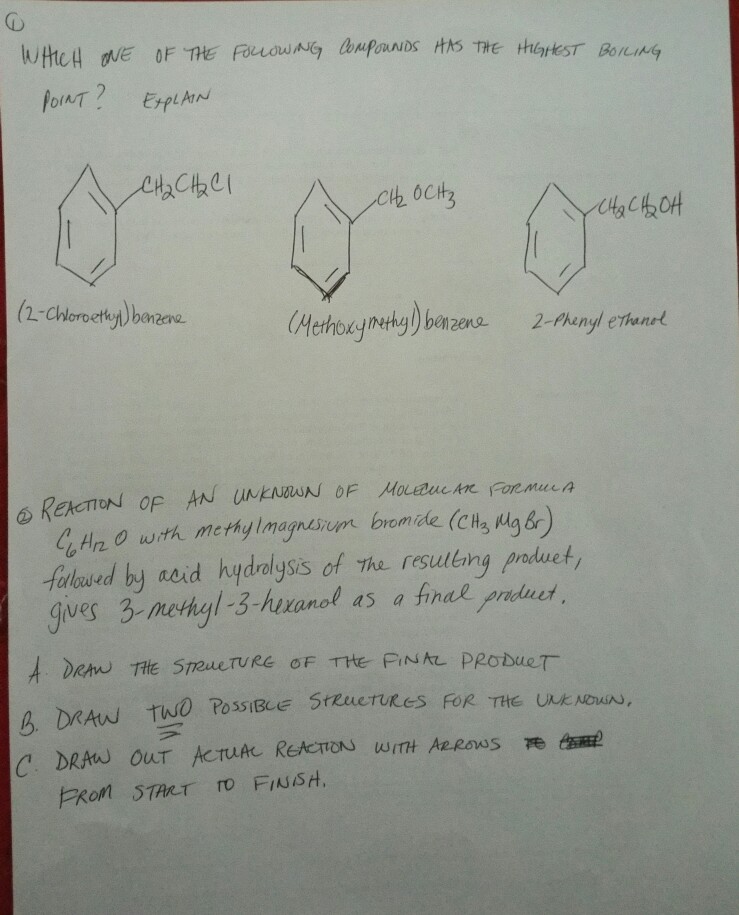 ①
WHICH ONE OF THE FOLLOWING COMPOUNDS HAS THE HIGHEST BOILING
POINT? EXPLAIN
CH2CH2Cl
CH2 OCH3
CH2CH2OH
(2-Chloroethyl)benzene
(Methoxymethyl)benzene
2-Phenyl ethanol
② REACTION OF AN UNKNOWN OF MOLECULAR FORMULA
C6H12O with methylmagnesium bromide (CH3MgBr)
followed by acid hydrolysis of the resulting product,
gives 3-methyl-3-hexanol as a final product.
A. DRAW THE STRUCTURE OF THE FINAL PRODUCT
B. DRAW TWO POSSIBLE STRUCTURES FOR THE UNKNOWN.
C. DRAW OUT ACTUAL REACTION WITH ARROWS
FROM START TO FINISH.